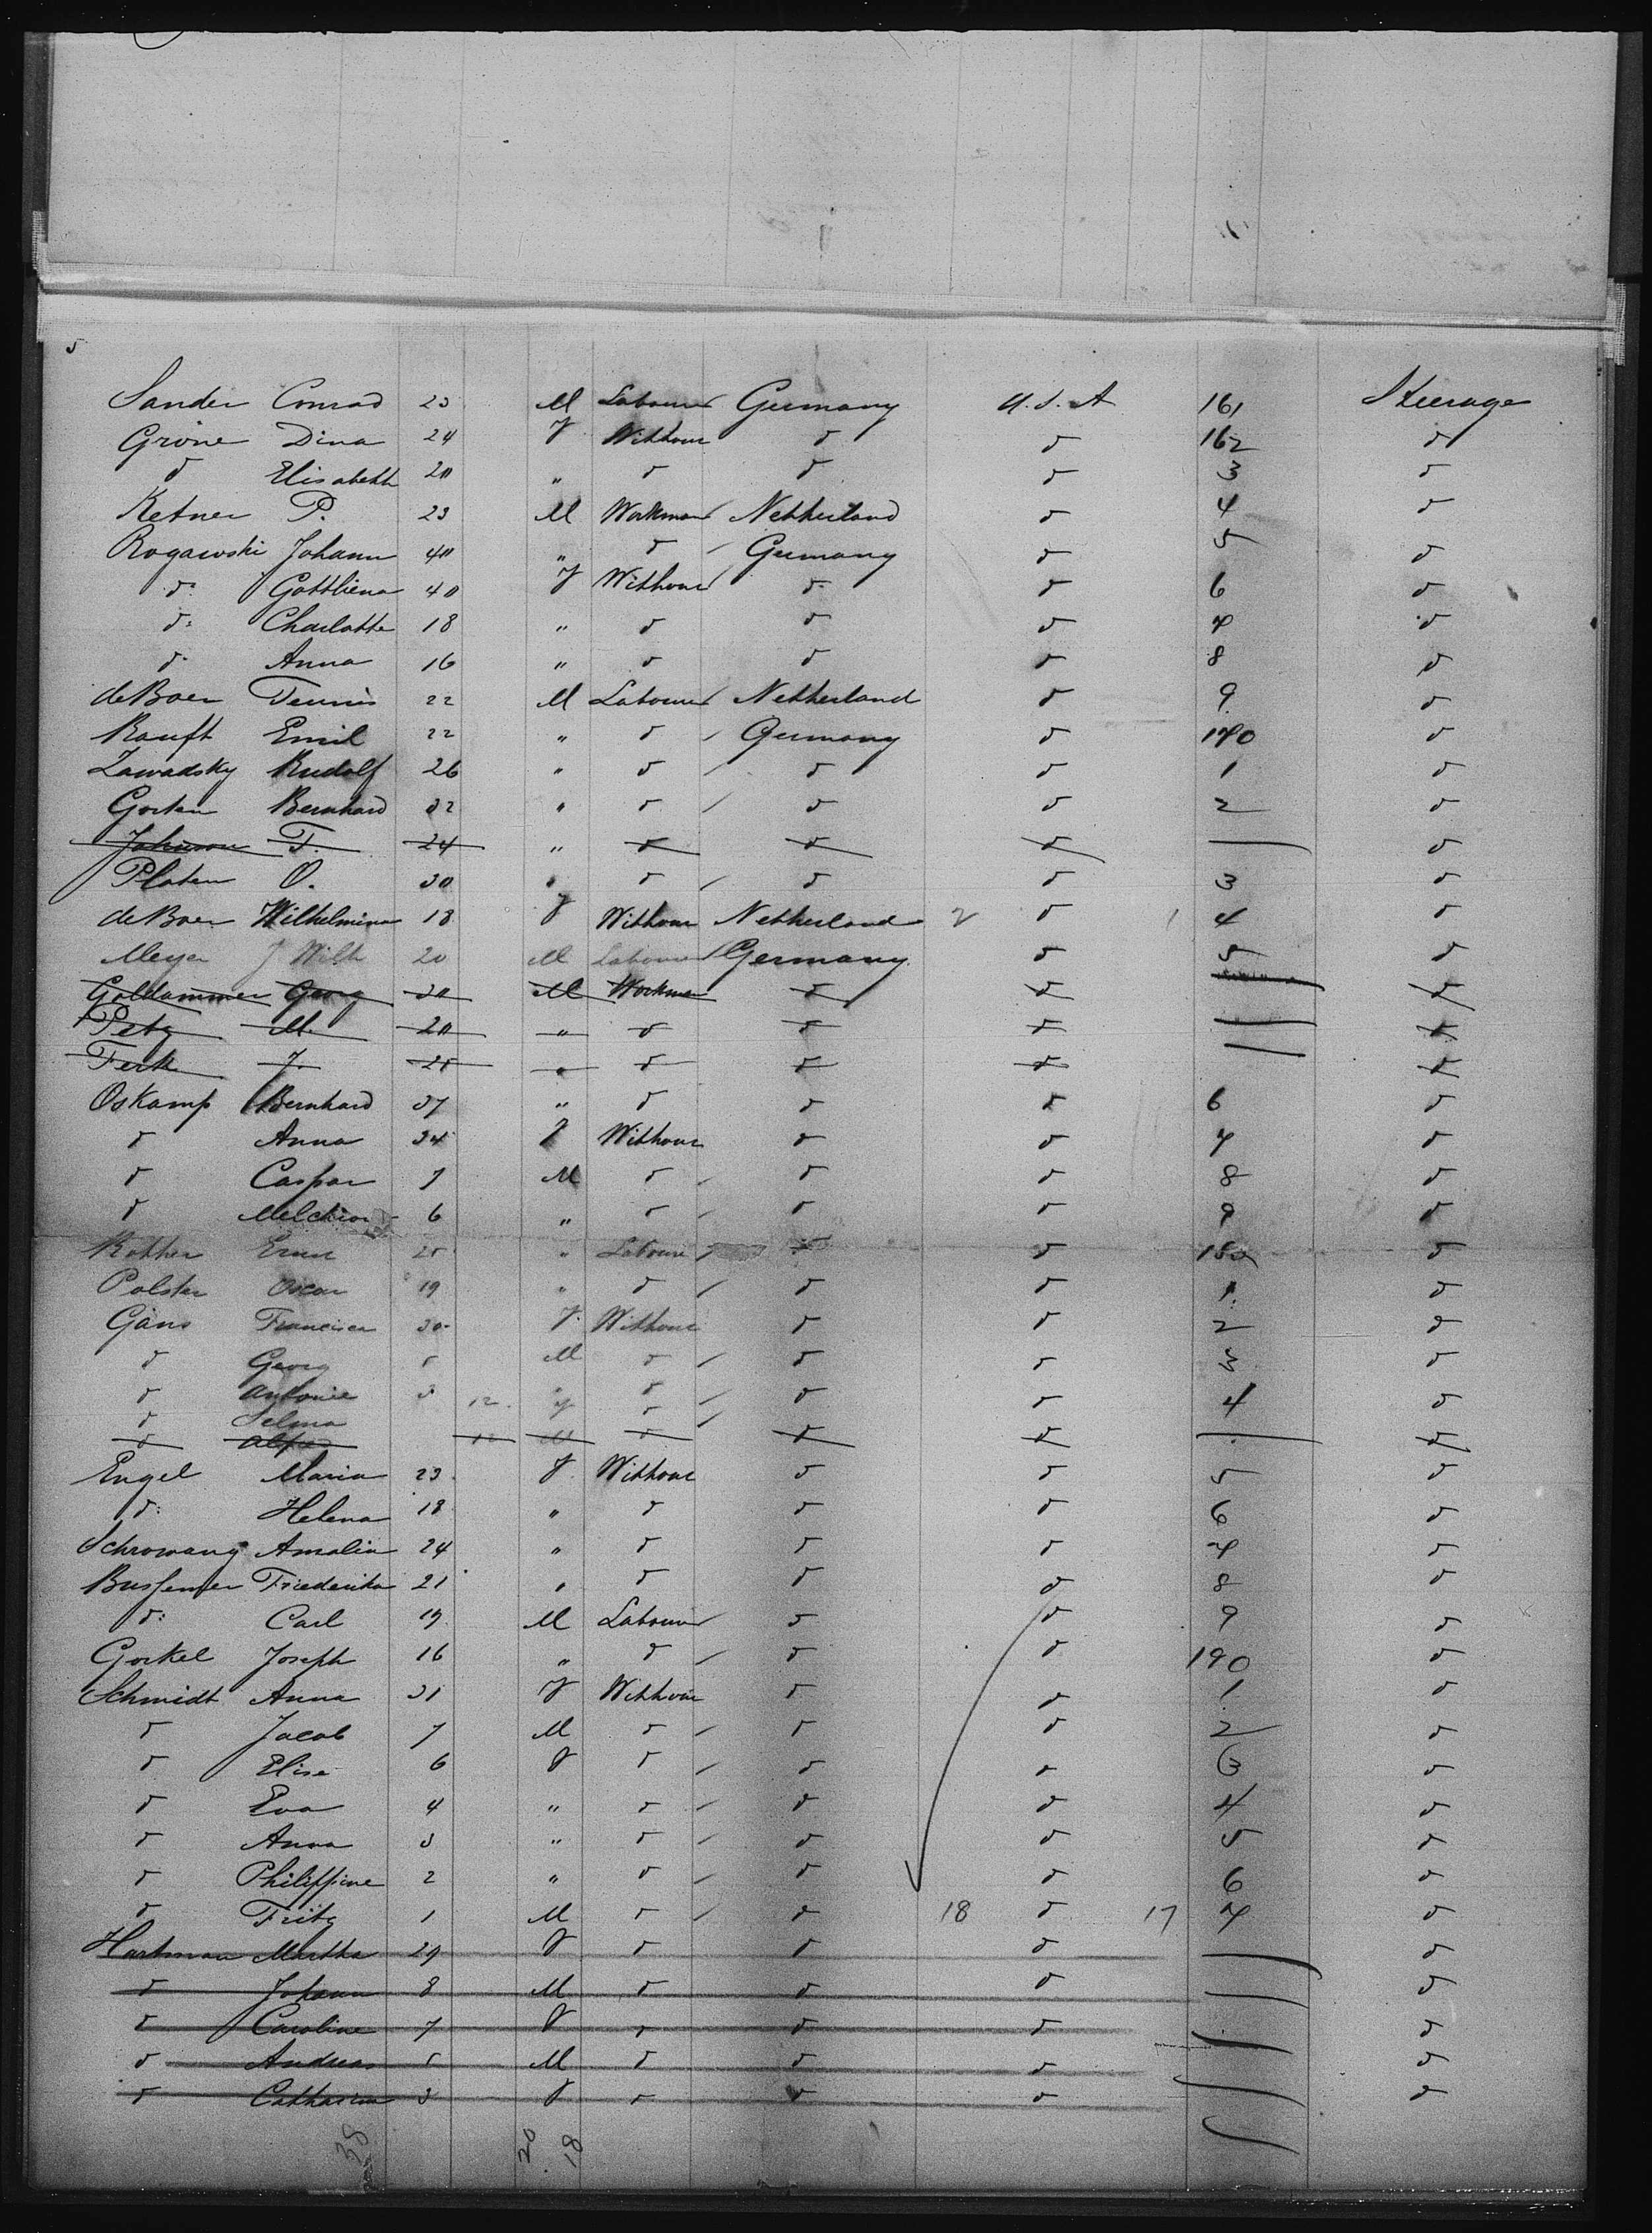 5
Sander Conrad 23 M Labourer Germany U.S.A 161 Steerage
Gröne Dina 24 F Without d d 162 d
d Elisabeth 20 " d d d 3 d
Ketner P. 23 M Workman Netherland d 4 d
Rogawski Johann 40 " d Germany d 5 d
d: Gottliena 40 F Without d d 6 d
d: Charlotte 18 " d d d 7 d
d: Anna 16 " d d d 8 d
de Boer Teunis 22 M Labourer Netherland d 9 d
Rauft Emil 22 " d Germany d 170 d
Zawadsky Rudolf 26 " d d d 1 d
Gorten Bernhard 32 " d d d 2 d
Johnson T. 24 " d d d — d
Platen O. 30 " d d d 3 d
de Boer Wilhelmina 18 F Without Netherland 2 d 1 4 d
Meyer J Wilh 20 M Labourer Germany d 5 d
Goldammer Georg 30 M Workman d d — d
Petz M. 20 " d d d — d
Ferk J. 25 " d d d — d
Oskamp Bernhard 37 " d d d 6 d
d Anna 34 F Without d d 7 d
d Caspar 7 M d d d 8 d
d Melchior 6 " d d d 9 d
Rother Ernst 25 " Labourer d d 180 d
Polster Oscar 19 " d d d 1 d
Gäns Francisca 30 F. Without d d 2 d
d Georg 5 M d d d 3 d
d Antonie 3 d d d 4 d
d Selma 12 F d
d Alfred M d d d — d
Engel Maria 23 F Without d d 5 d
d: Helena 18 " d d d 6 d
Schrowang Amalia 24 " d d d 7 d
Bussemer Friederika 21 " d d d 8 d
d: Carl 19 M Labourer d d 9 d
Gorkel Joseph 16 " d d d 190 d
Schmidt Anna 31 F Without d d 1 d
d Jacob 7 M d d d 2 d
d Elise 6 F d d d 3 d
d Eva 4 " d d d 4 d
d Anna 3 " d d d 5 d
d Philippine 2 " d d d 6 d
d Fritz 1 M d d 18 d 17 7 d
Hartman Martha 29 F d d d — d
d Johann 8 M d d d — d
d Caroline 7 F d d d — d
d Andreas 5 M d d d — d
d Catharina 3 F d d d — d
38 20 18